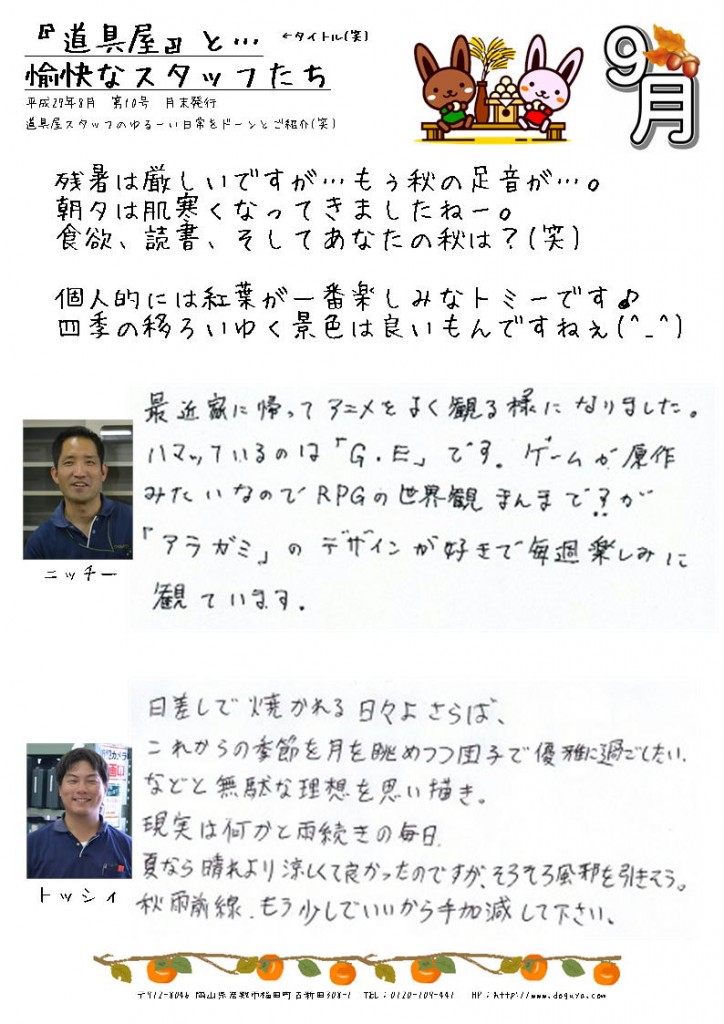 『道具屋』と… ←タイトル(笑)
愉快なスタッフたち
平成29年8月 第10号 月末発行
道具屋スタッフのゆるーい日常をドーンとご紹介(笑)
9月
残暑は厳しいですが…もう秋の足音が…。
朝夕は肌寒くなってきましたねー。
食欲、読書、そしてあなたの秋は?(笑)
個人的には紅葉が一番楽しみなトミーです♪
四季の移ろいゆく景色は良いもんですねぇ(^_^)
最近家に帰ってアニメをよく観る様になりました。
ハマッているのは「G.E」です。ゲームが原作
みたいなのでRPGの世界観まんまですが
「アラガミ」のデザインが好きで毎週楽しみに
観ています。
ニッチー
日差しで焼かれる日々よさらば、
これからの季節を月を眺めつつ団子で優雅に過ごしたい.
などと無駄な理想を思い描き。
現実は何かと雨続きの毎日.
夏なら晴れより涼しくて良かったのですが、そろそろ風邪を引きそう。
秋雨前線.もう少しでいいから手加減して下さい、
トッシィ
〒712-8046 岡山県倉敷市福田町古新田308-1 TEL:0120-109-441 HP:http://www.doguya.com